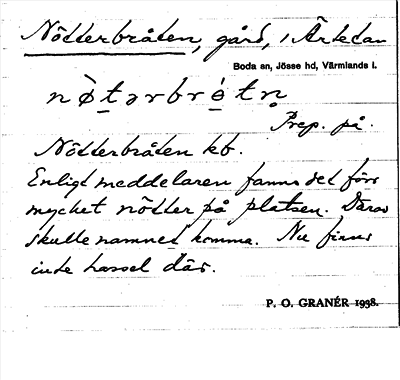 Nötterbråten, gård, i Ärtetan
Boda sn, Jösse hd, Värmlands l.
nø̀tərbrå̀tn̥
Prep. på.
Nötterbråten kb.
Enligt meddelaren fanns det förr
mycket nötter på platsen. Därav
skulle namnet komma. Nu finns
inte hassel där.
P. O. GRANÉR 1938.